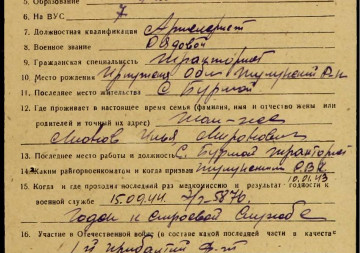 5. Образование
6. На ВУС 7
7. Должностная квалификация Артиллерист
8. Военное звание Рядовой
9. Гражданская специальность тракторист
10. Место рождения Иркутская обл. Тулунский р-н
11. Последнее место жительства с. Бурхой
12. Где проживает в настоящее время семья (фамилия, имя и отчество жены или
родителей и точный их адрес) Там-же
Илья Миронович
13. Последнее место работы и должность С. Бурхой тракторист
14. Каким райгорвоенкоматом и когда призван Тулунским РВК
10.01.43
15. Когда и где проходил последний раз медкомиссию и результат годности к
военной службе 15.09.44.
Годен к строевой службе
16. Участие в Отечественной войне (в составе какой последней части в качестве